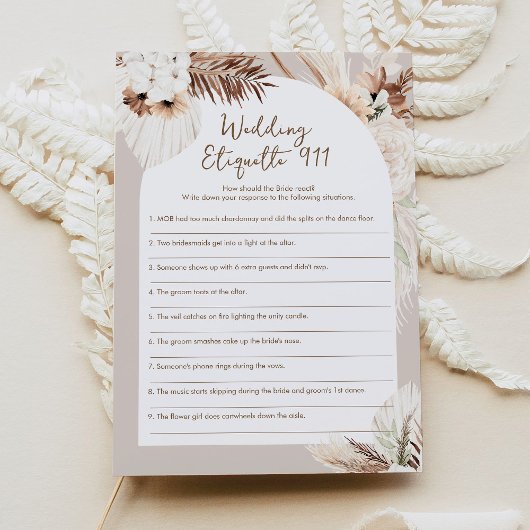 Wedding
Etiquette 911
How should the Bride react?
Write down your response to the following situations.
1. MOB had too much chardonnay and did the splits on the dance floor.
2. Two bridesmaids get into a fight at the altar.
3. Someone shows up with 6 extra guests and didn't rsvp.
4. The groom toots at the altar.
5. The veil catches on fire lighting the unity candle.
6. The groom smashes cake up the bride's nose.
7. Someone's phone rings during the vows.
8. The music starts skipping during the bride and groom's 1st dance.
9. The flower girl does cartwheels down the aisle.